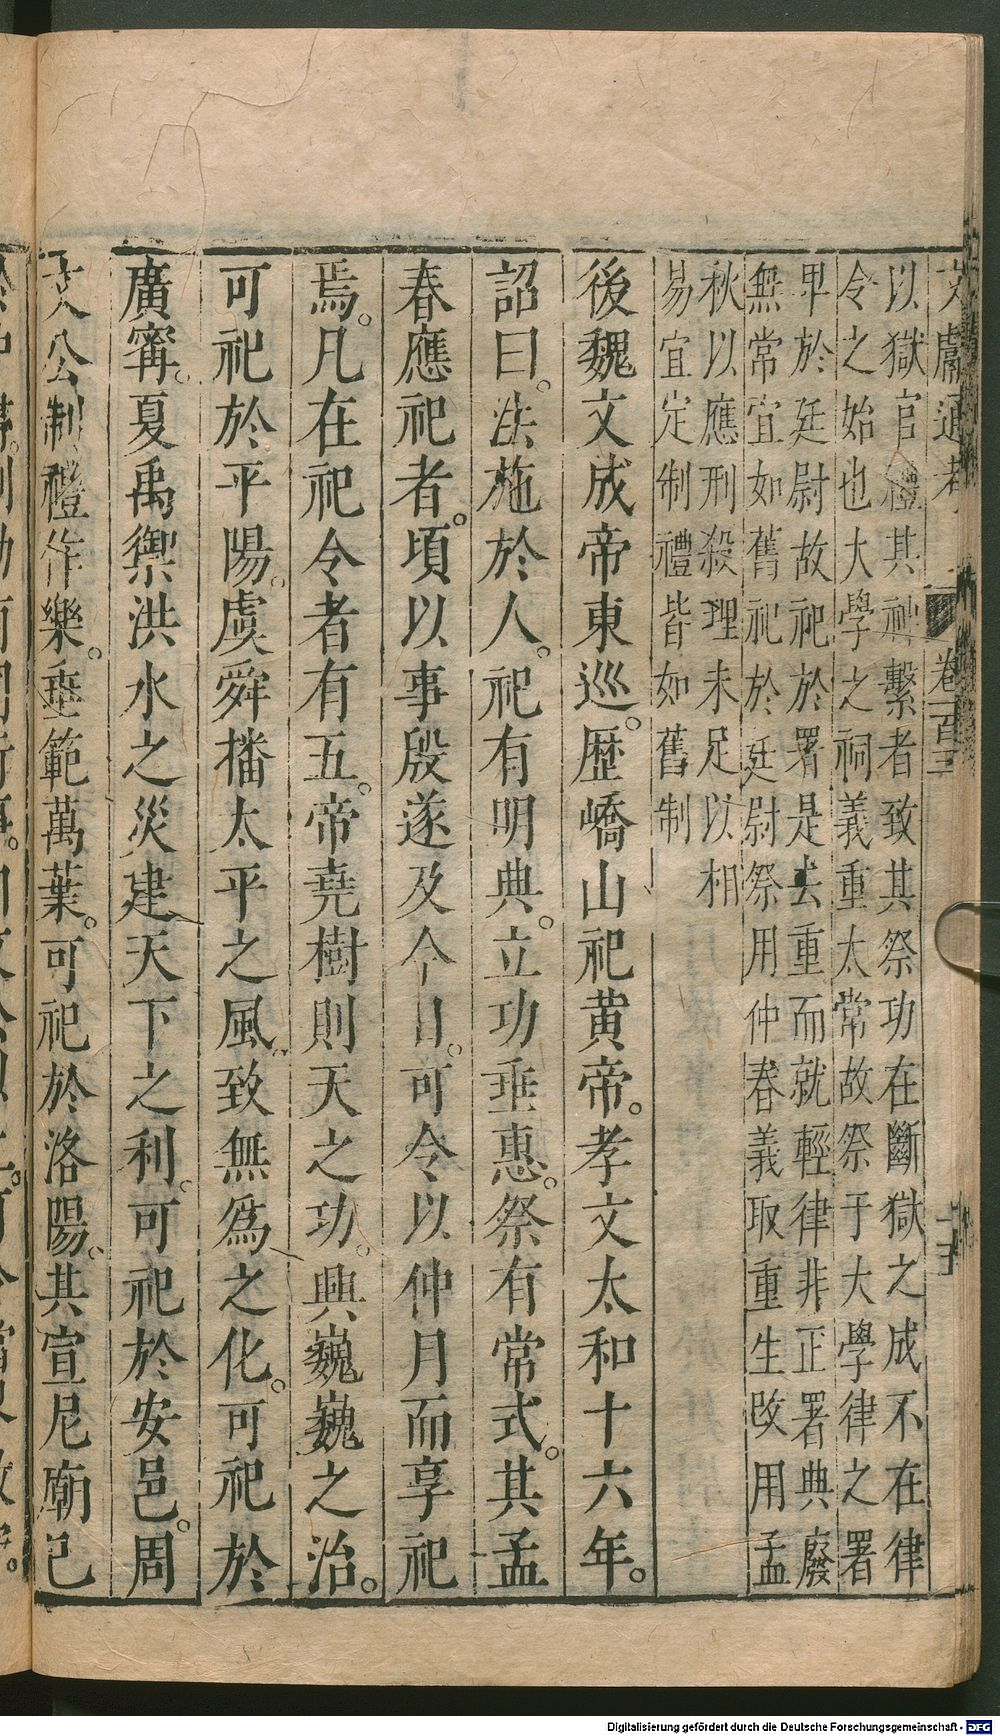 文獻通考 卷一百三
以獄官禮其神繫者致其祭功在斷獄之成不在律
令之始也大學之祠義重太常故祭于大學律之署
卑於廷尉故祀於署是去重而就輕律非正署典廢
無常宜如舊祀於廷尉祭用仲春義取重生改用孟
秋以應刑殺理未足以相
易宜定制禮皆如舊制
後魏文成帝東巡。歷嶠山祀黃帝。孝文太和十六年。
詔曰。法施於人。祀有明典。立功垂惠。祭有常式。其孟
春應祀者。頃以事殷遂及今日。可令以仲月而享祀
焉。凡在祀令者有五。帝堯樹則天之功。興巍巍之治。
可祀於平陽。虞舜播太平之風。致無爲之化。可祀於
廣甯。夏禹禦洪水之災建天下之利。可祀於安邑。周
文公制禮作樂。垂範萬葉。可祀於洛陽。其宣尼廟已
Digitalisierung gefördert durch die Deutsche Forschungsgemeinschaft - DFG